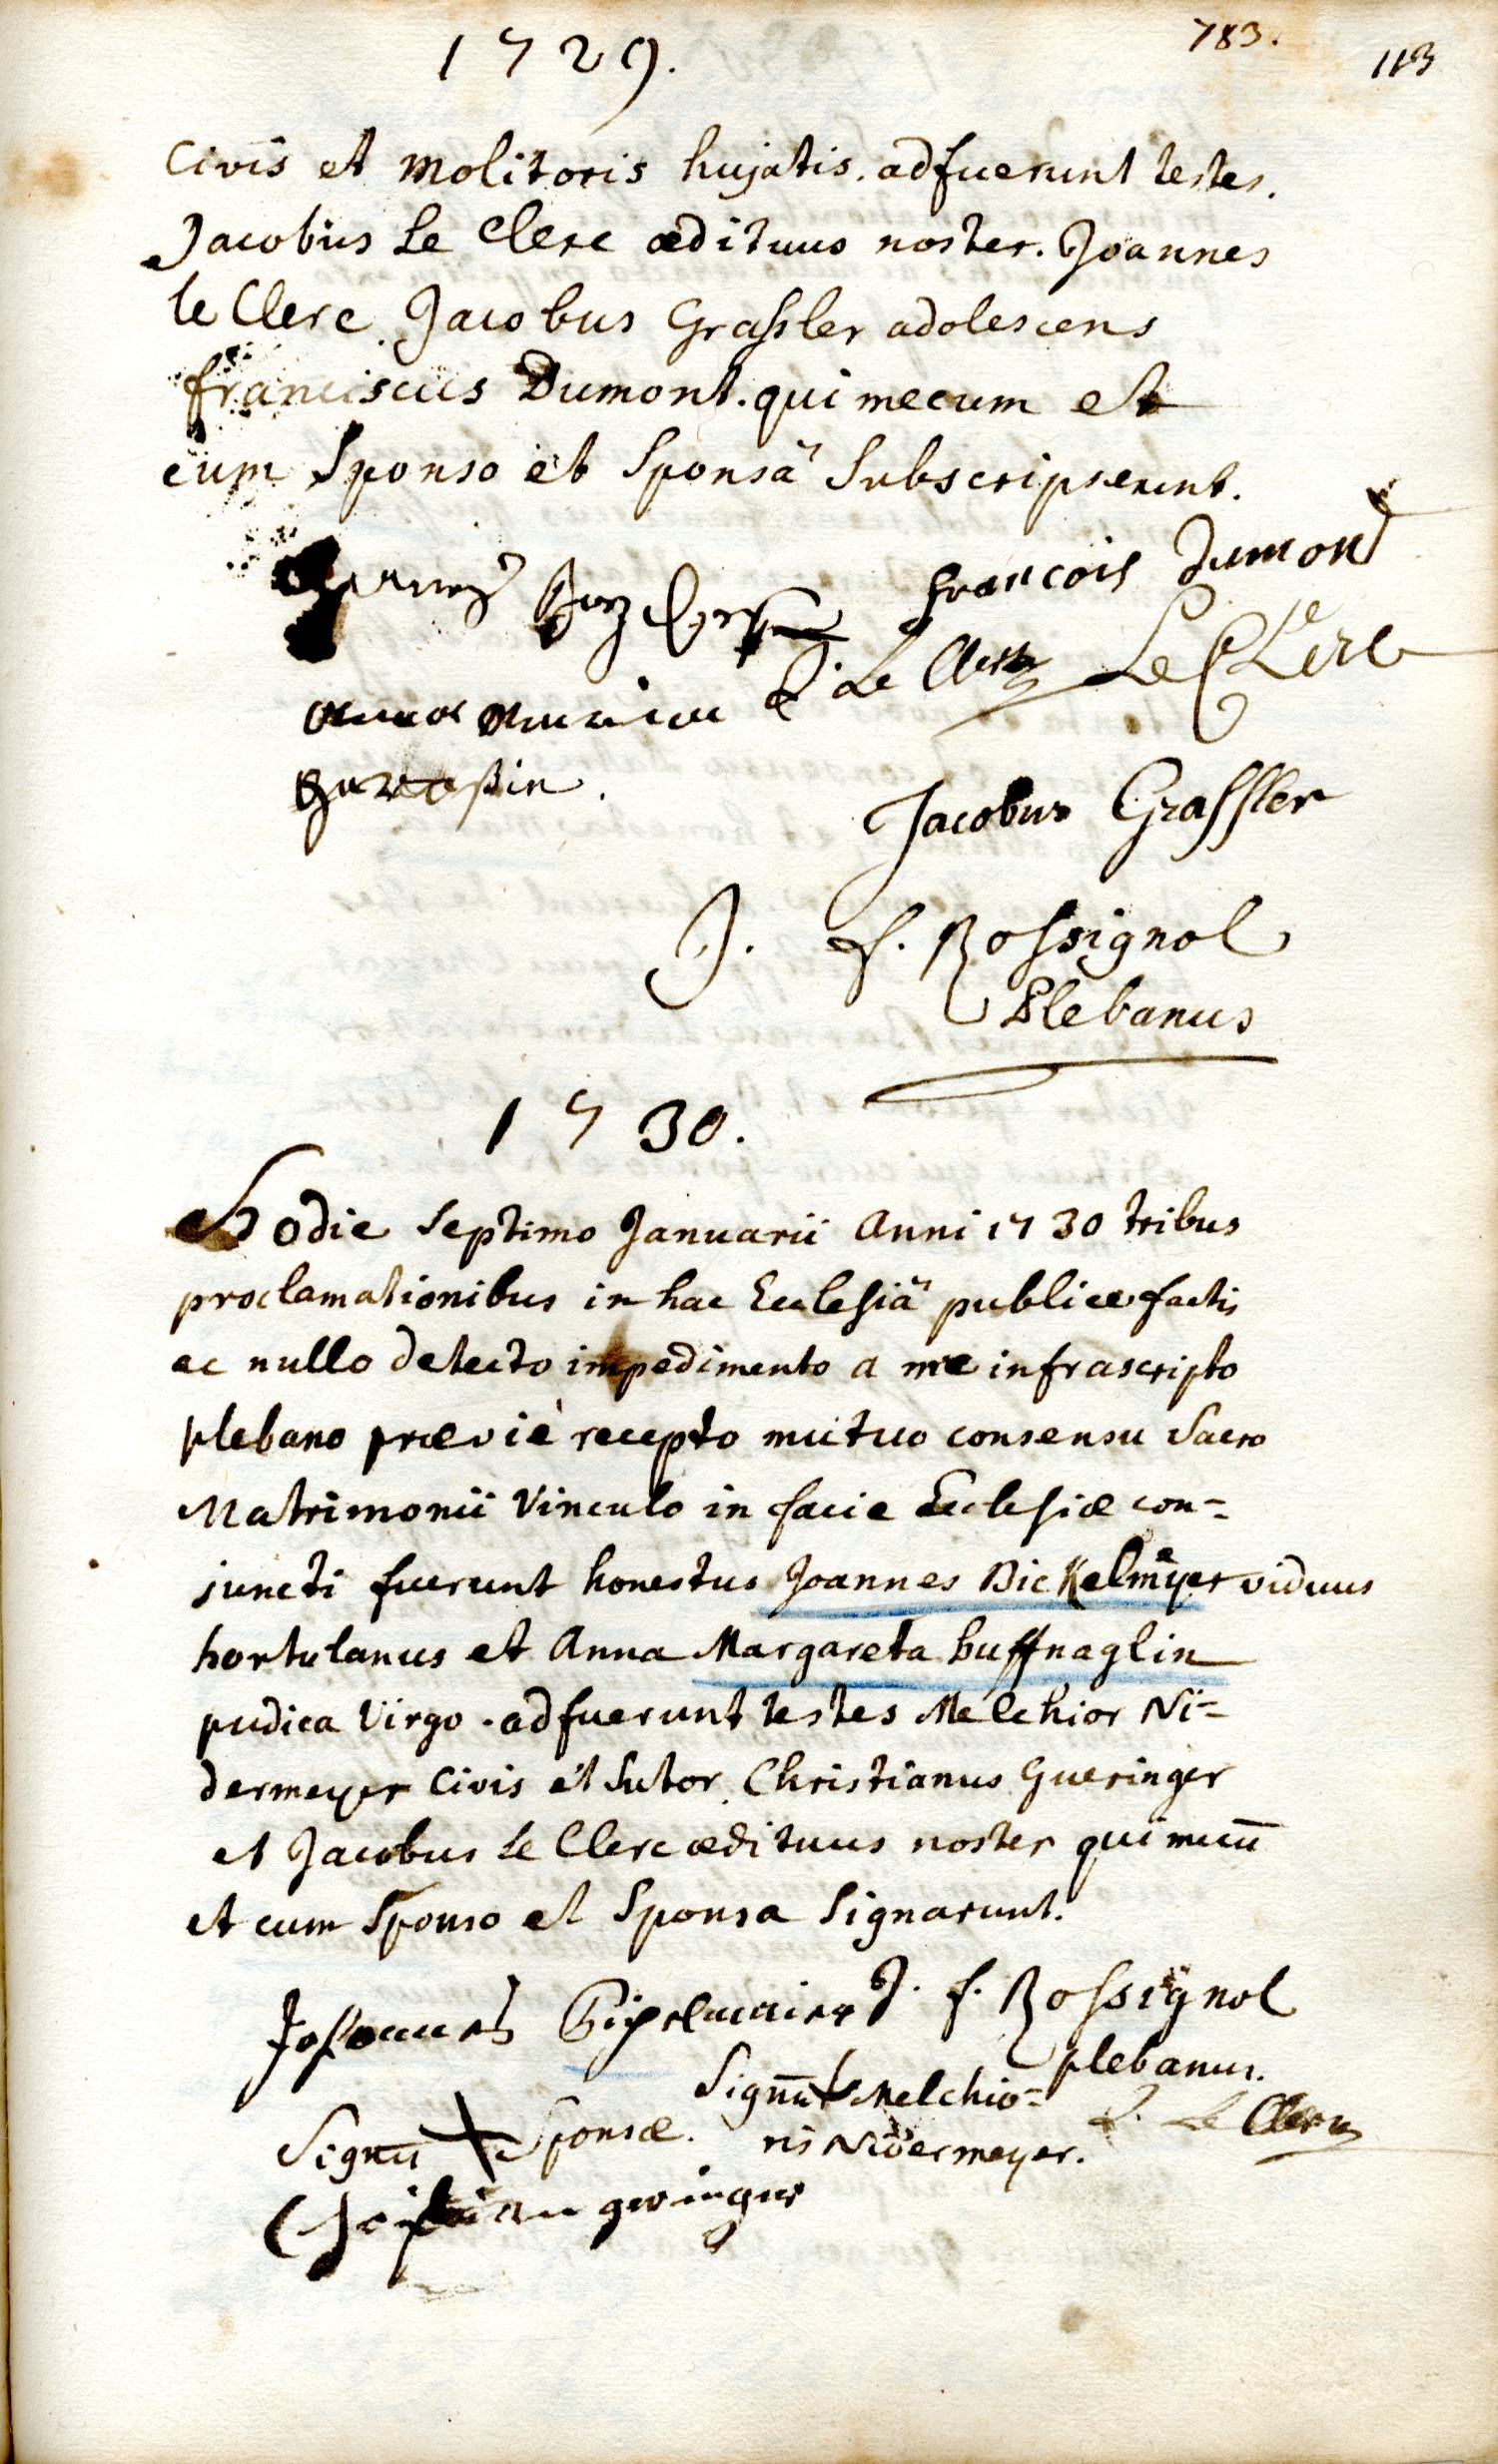 1729.
783.
113
Civis et Molitoris hujatis. adfuerunt testes.
Jacobus Le Clerc ædituus noster. Joannes
le Clerc Jacobus Grassler adolescens
franciscus Dumont. qui mecum et
cum Sponso et Sponsâ Subscripserunt.
francois dumond
J. Le Clerc
Le Clerc
Jacobus Grassler
J. f. Rossignol
Plebanus
1730.
Hodie Septimo Januarii Anni 1730 tribus
proclamationibus in hac Ecclesiâ publice factis
ac nullo detecto impedimento a me infrascripto
plebano præviè recepto mutuo consensu Sacro
Matrimonii Vinculo in facie Ecclesiæ con=
juncti fuerunt honestus Joannes Bickelmeyer viduus
hortulanus et Anna Margareta huffnaglin
pudica Virgo. adfuerunt testes Melchior Ni=
dermeyer Civis et Sutor. Christianus Gueringer
et Jacobus Le Clerc ædituus noster qui mecū
et cum Sponso et Sponsa Signarunt.
J. f. Rossignol
plebanus.
Signū Melchio=
ris Nidermeyer.
J. Le Clerc
Signū Sponsæ.
geringer